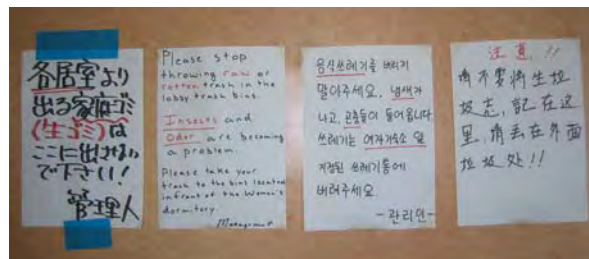 各居室より
出る家庭ゴミ
(生ゴミ)は
ここに出さない
で下さい!
管理人
Please stop
throwing raw or
rotten trash in the
lobby trash bins.
Insects and
Odor are becoming
a problem.
Please take your
trash to the bins located
in front of the Women's
dormitory.
Management
음식쓰레기를 버리지
말아주세요. 냄새가
나고, 곤충들이 들어옵니다.
쓰레기는 여자기숙소 앞
지정된 쓰레기통에
버려주세요.
-관리인-
注意!!
请不要将生垃
圾丢,在这
里,请丢在外面
垃圾处!!